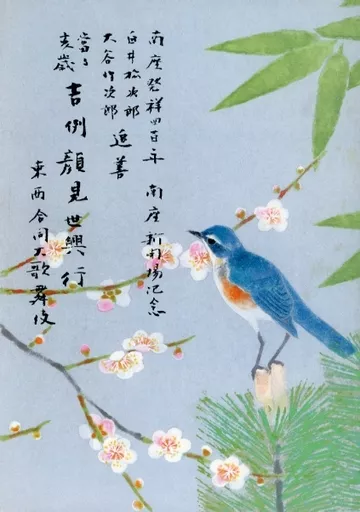 南座発祥四百年　南座新開場記念
白井松次郎
大谷竹次郎
追善
當る
亥歳
吉例顔見世興行
東西合同大歌舞伎